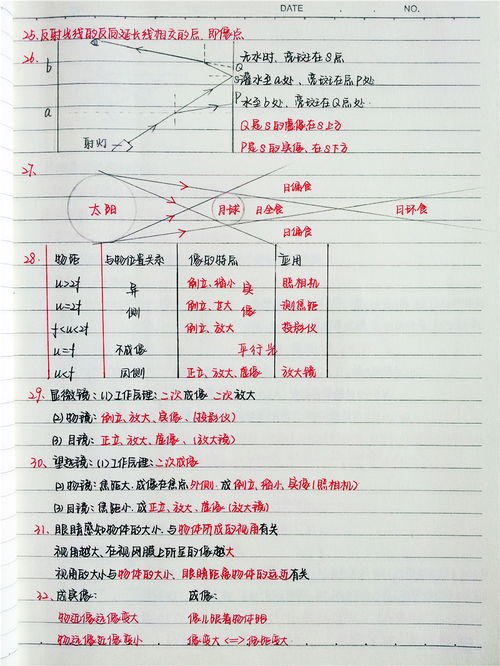 DATE . . NO.
25. 反射光线的反向延长线相交的点,即像点
26. 无水时,光斑在S点
b Q
S 灌水至a处,光斑在P处
P 水至b处,光斑在Q点处
a
Q是S的虚像在S上方
射灯
P是S的实像,在S下方
27.
日偏食
太阳 月球 日全食 日环食
日偏食
28. 物距 与物位置关系 像的特点 应用
u>2f 异 倒立、缩小 实 照相机
u=2f 侧 倒立、等大 像 测焦距
f<u<2f 倒立、放大 投影仪
u=f 不成像 平行光
u<f 同侧 正立、放大、虚像 放大镜
29. 显微镜:(1)工作原理:二次成像 二次放大
(2)物镜:倒立、放大、实像、(投影仪)
(3)目镜:正立、放大、虚像、(放大镜)
30. 望远镜:(1)工作原理:二次成像
(2)物镜:焦距大,成像在焦点外侧,成倒立、缩小、实像(照相机)
(3)目镜:焦距小,成正立、放大、虚像(放大镜)
31. 眼睛感知物体的大小,与物体所成的视角有关
视角越大、在视网膜上所呈的像越大
视角的大小与物体的大小、眼睛距离物体的远近有关
32. 成实像: 成像:
物近像远像变大 像儿跟着物体跑
物远像近像变小 像变大<=>像距变大